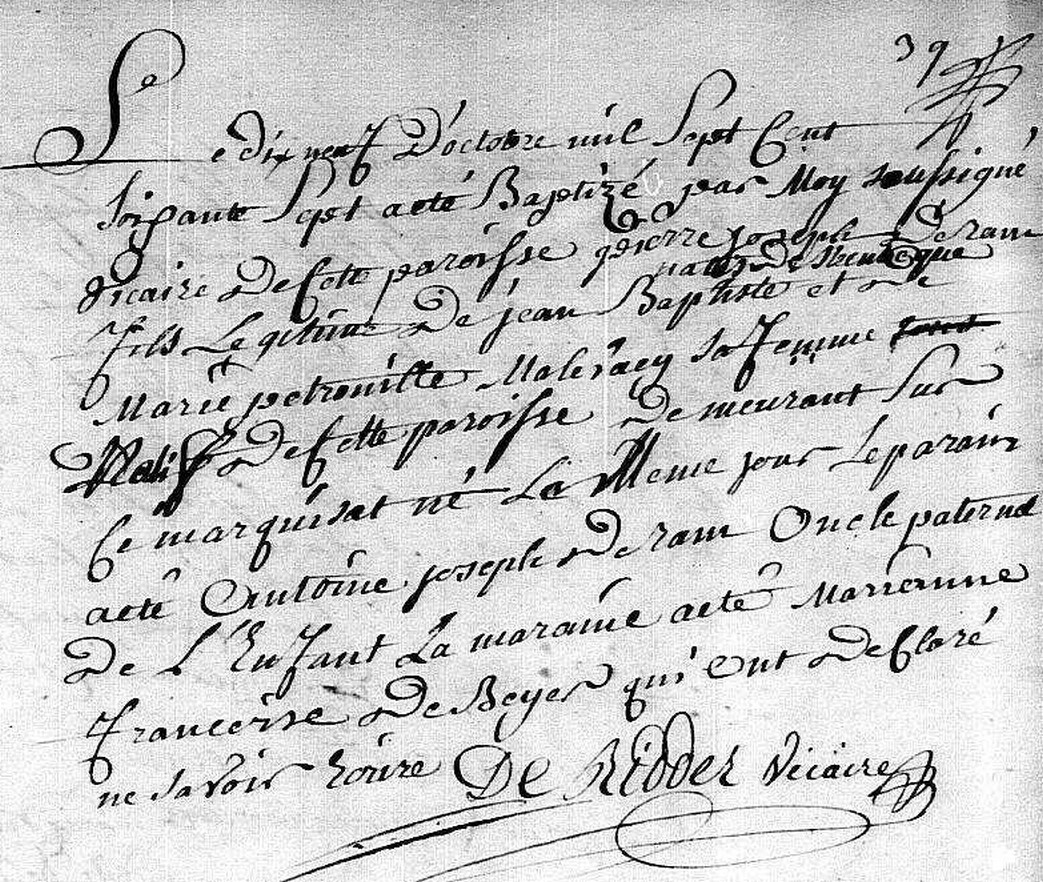 39
Le dix neuf D'octobre mil Sept Cent
soixante Sept acté Baptizé par Moy soussigné
vicaire De Cette paroisse pierre joseph De ram
natif De
fils Legitime De jean Baptiste et De
Marie petronille sa femme
Natif De Cette paroisse Demeurant Sur
Ce marquisat né Le Meme jour Le parain
acté Antoine joseph De ram Oncle paternel
De L'Enfant La maraine acté Marrianne
francoise De Beyer qui Ont De Claré
ne savoir Ecrire De Ridder Vicaire